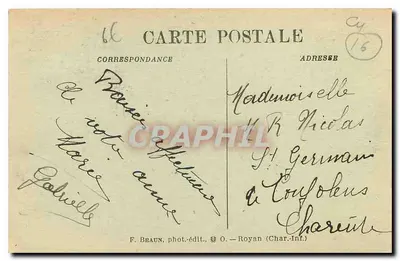 66
Cy
16
CARTE POSTALE
CORRESPONDANCE
ADRESSE
Baiser affectueux
de votre amie
Marie
Gabrielle
Mademoiselle
M R Nicolas
St Germain
de Confolens
Charente
CARTAPHIL
F. BRAUN, phot.-édit., O. — Royan (Char.-Inf.)